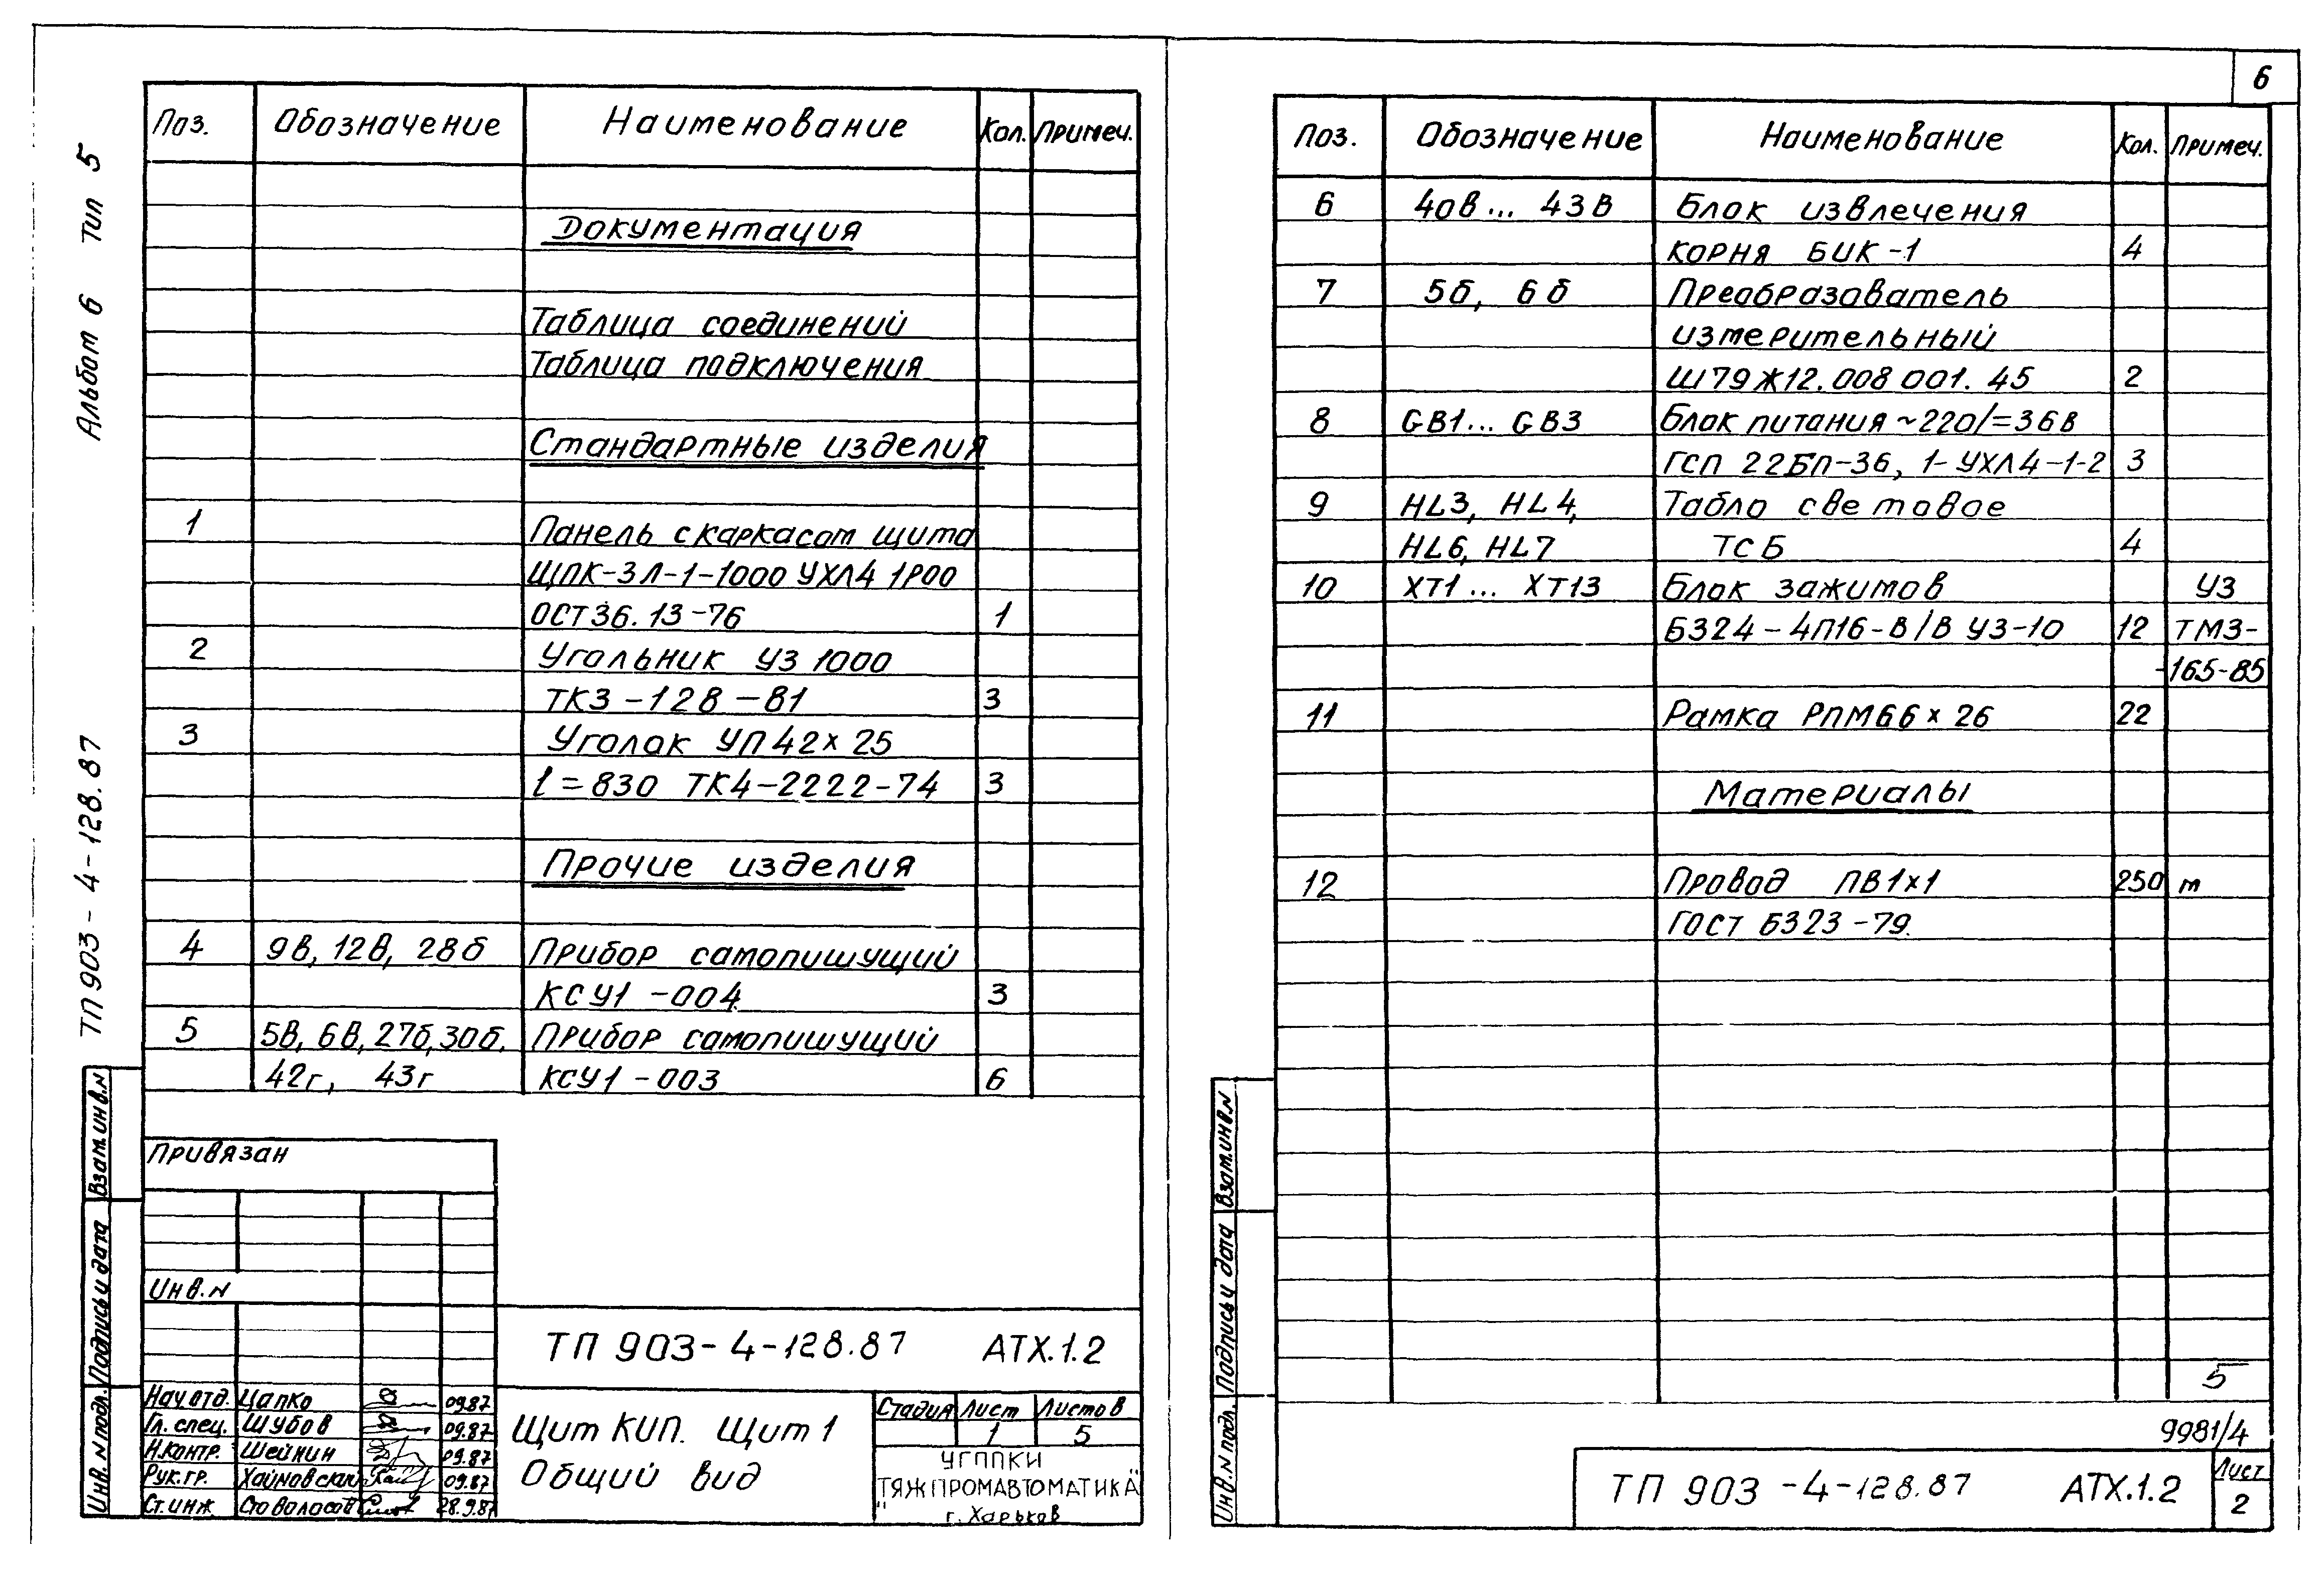 Альбом 6 Тип 5
ТП 903-4-128.87
Поз. Обозначение Наименование Кол. Примеч.
Документация
Таблица соединений
Таблица подключения
Стандартные изделия
1 Панель с каркасом щита
ЩПК-ЗЛ-1-1000 УХЛ4 1Р00
ОСТ36.13-76 1
2 Угольник УЗ 1000
ТКЗ-128-81 3
3 Уголок УП 42х25
l=830 ТК4-2222-74 3
Прочие изделия
4 9в, 12в, 28б Прибор самопишущий
КСУ1-004 3
5 5в, 6в, 27б, 30б, Прибор самопишущий
42г, 43г КСУ1-003 6
Привязан
Инв.N
ТП 903-4-128.87 АТХ.1.2
Нач.отд. Цапко 09.87
Гл. спец. Шубов 09.87
Н.контр. Шейнин 09.87
Рук.гр. 09.87
Ст.инж. 28.9.87
Щит КИП. Щит 1
Общий вид
Стадия Лист Листов
1 5
УГППКИ
"ТЯЖПРОМАВТОМАТИКА"
г. Харьков
Взам.инв.N
Подпись и дата
Инв.N подл.
6
Поз. Обозначение Наименование Кол. Примеч.
6 40в... 43в Блок извлечения
корня БИК-1 4
7 5б, 6б Преобразователь
измерительный
Ш79Ж12.008 001.45 2
8 GB1... GB3 Блок питания ~220/=36В
ГСП 22БП-36, 1-УХЛ4-1-2 3
9 HL3, HL4, Табло световое
HL6, HL7 ТСБ 4
10 XT1... XT13 Блок зажимов УЗ
БЗ24-4П16-В/В УЗ-10 12 ТМЗ-
-165-85
11 Рамка РПМ66х26 22
Материалы
12 Провод ПВ1х1 250 м
ГОСТ 6323-79.
5
9981/4
ТП 903-4-128.87 АТХ.1.2
Лист
2
Взам.инв.N
Подпись и дата
Инв.N подл.